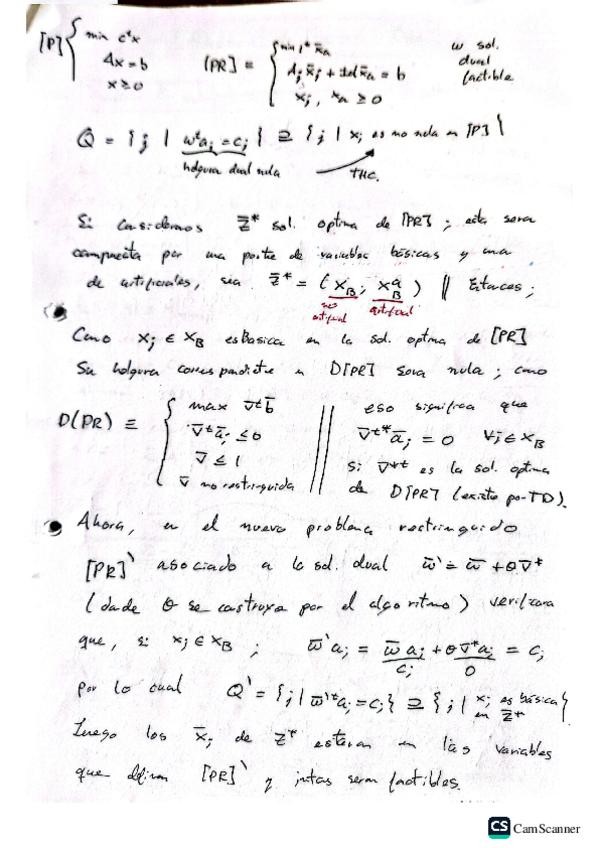 [P] { min cᵗx
Ax = b
x ≥ 0
[PR] ≡ { min 1ᵗ x̄a
x̄j + Id x̄a = b
xj, xa ≥ 0
w sol.
dual
factible
Q = { j | wᵗaj = cj } ⊇ { j | xj es no nula en [P] }
holgura dual nula
THC.
Si consideramos z̄* sol. optima de [PR]; esta sera
compuesta por una parte de variables básicas y una
de artificiales, sea z̄* = (xB; xBᵃ) || Entonces;
no artificial
artificial
Como xj ∈ xB es basica en la sol. optima de [PR]
Su holgura correspondiente en D[PR] sera nula; como
D(PR) ≡ { max v̄ᵗb̄
v̄ᵗāj ≤ 0
v̄ ≤ 1
v̄ no restringida
eso significa que
v̄ᵗ*āj = 0 ∀j ∈ xB
si v̄*ᵗ es la sol. optima
de D[PR] (existe por TD).
Ahora, en el nuevo problema restringuido
[PR]' asociado a la sol. dual w̄' = w̄ + θv̄*
(donde θ se construya por el algoritmo) verificara
que, si xj ∈ xB; w̄'aj = w̄aj + θv̄*aj = cj
cj 0
por lo cual Q' = { j | w̄'ᵗaj = cj } ⊇ { j | xj es básica en z̄* }
Luego los x̄j de z̄* estaran en las variables
que definen [PR]' y juntas seran factibles.
CS CamScanner